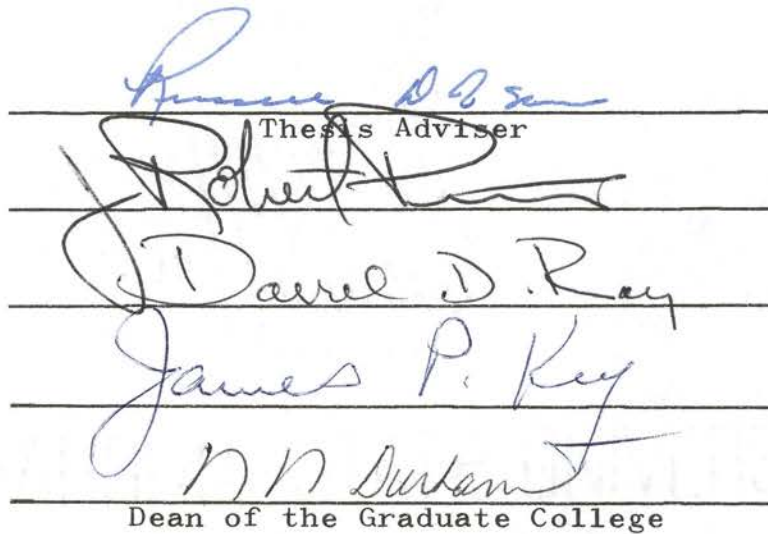 Thesis Adviser
J Robert
Darrel D. Ray
James P. Key
N N Durham
Dean of the Graduate College